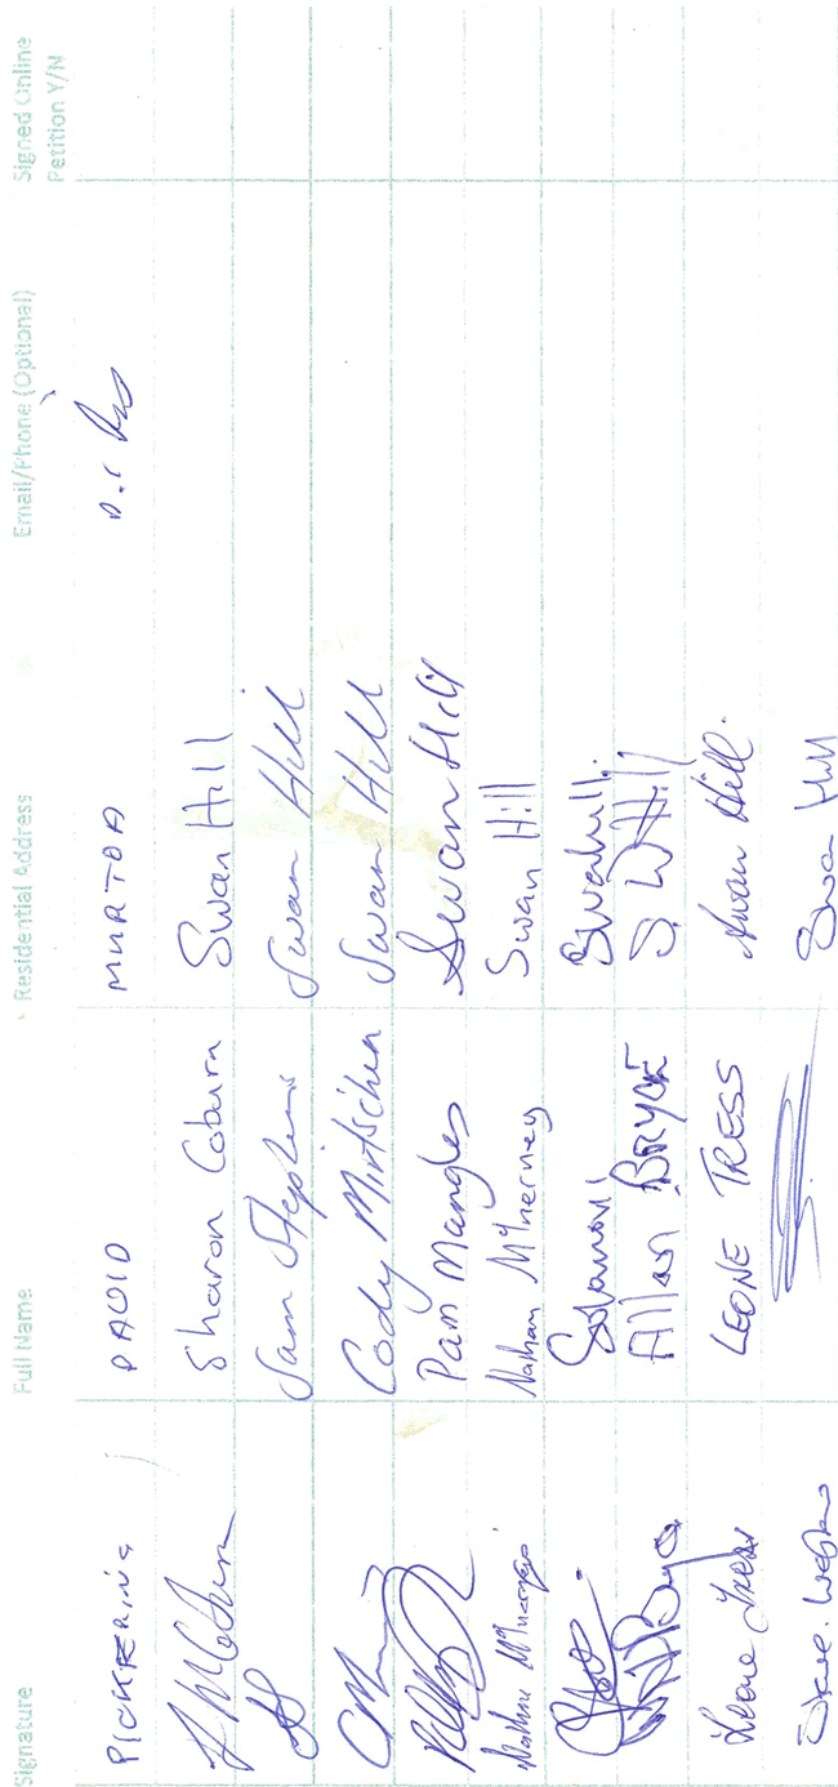 Signature Full Name Residential Address Email/Phone (Optional) Signed Online Petition Y/N
PICKERING DAVID MURTOA
Sharon Coburn Swan Hill
Sam Stephens Swan Hill
Cody Mirtschin Swan Hill
Pam Mangles Swan Hill
Nathan McInerney Nathan McInerney Swan Hill
Swanhill.
Allan BRYCE S. W Hill
Leone Tress LEONE TRESS Swan Hill.
Swan Hill